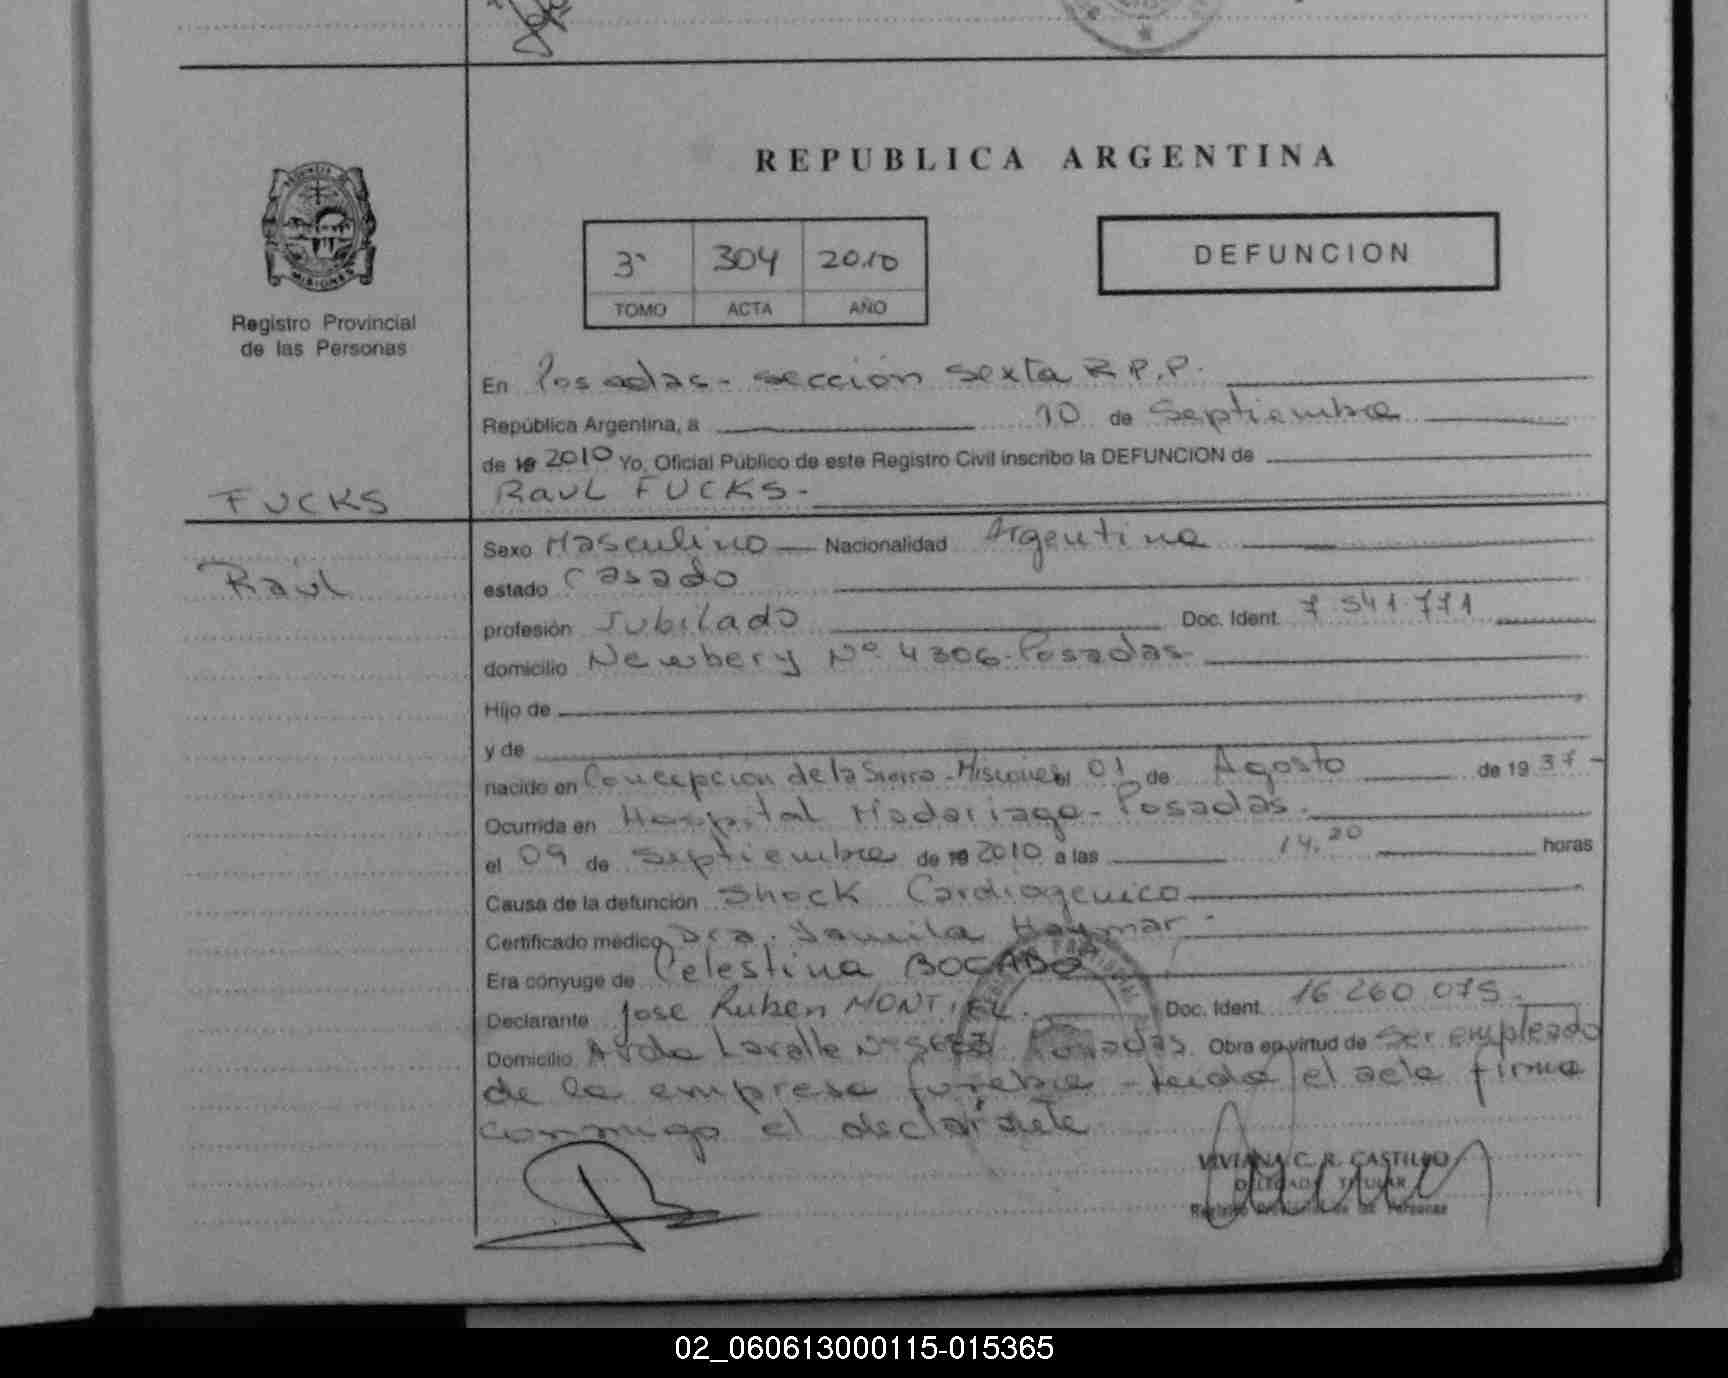 REPUBLICA ARGENTINA
MISIONES
Registro Provincial
de las Personas
3° 304 2010
TOMO ACTA AÑO
DEFUNCION
En Posadas - sección Sexta R.P.P.
República Argentina, a 10 de Septiembre
de 19 2010 Yo, Oficial Público de este Registro Civil inscribo la DEFUNCION de
FUCKS
RAUL FUCKS.-
Raúl
Sexo Masculino Nacionalidad Argentina
estado Casado
profesión Jubilado Doc. Ident. 7.541.771
domicilio Newbery Nº 4306-Posadas-
Hijo de
y de
nacido en Concepcion de la Sierra-Misiones el 01 de Agosto de 19 37-
Ocurrida en Hospital Madariaga-Posadas.
el 09 de Septiembre de 19 2010 a las 14,20 horas
Causa de la defunción Shock Cardiogenico
Certificado médico Dra. Haymar-
Era cónyuge de Celestina BOGADO
Declarante Jose Ruben MONTIEL. Doc. Ident. 16 260 075.-
Domicilio Avda Lavalle Nº Posadas. Obra en virtud de ser empleado
de la empresa funebre - leida el acta firma
conmigo el declarante
VIVIANA C. R. CASTILLO
DELEGADA TITULAR
Registro Provincial de las Personas
02_060613000115-015365